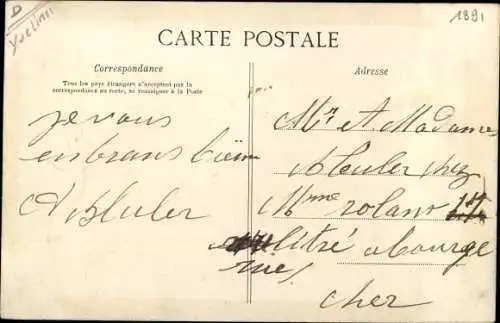 D
Yvelines
1891
CARTE POSTALE
Correspondance
Adresse
Tous les pays étrangers n'acceptent pas la
correspondance au recto, se renseigner à la Poste
je vous
enbrans bien
A Muler
Mr et Madame
Muler chez
Mme roland
litré a bourge
rue
cher